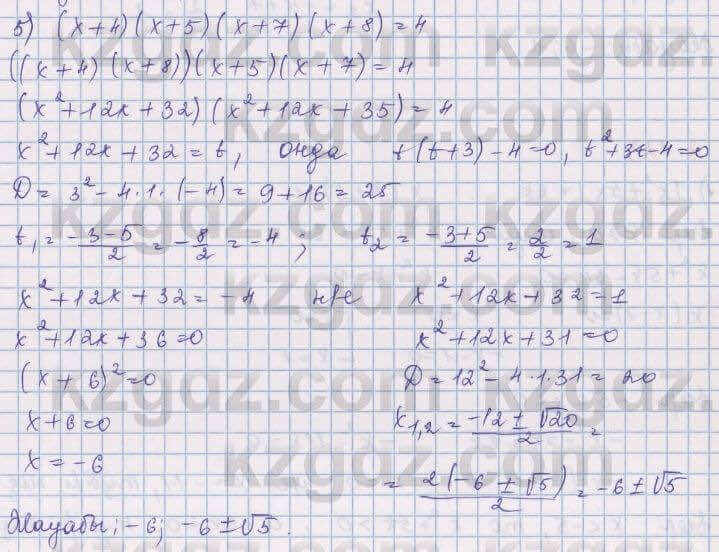 5) (x+4)(x+5)(x+7)(x+8)=4
((x+4)(x+8))(x+5)(x+7)=4
(x²+12x+32)(x²+12x+35)=4
x²+12x+32=t, онда t(t+3)-4=0, t²+3t-4=0
D=3²-4·1·(-4)=9+16=25
t₁=\frac{-3-5}{2}=-\frac{8}{2}=-4; t₂=\frac{-3+5}{2}=\frac{2}{2}=1
x²+12x+32=-4 нме x²+12x+32=1
x²+12x+36=0 x²+12x+31=0
(x+6)²=0 D=12²-4·1·31=20
x+6=0 x₁,₂=\frac{-12±√20}{2}=
x=-6 =\frac{2(-6±√5)}{2}=-6±√5
Жауабы: -6; -6±√5.
kzgdz.com